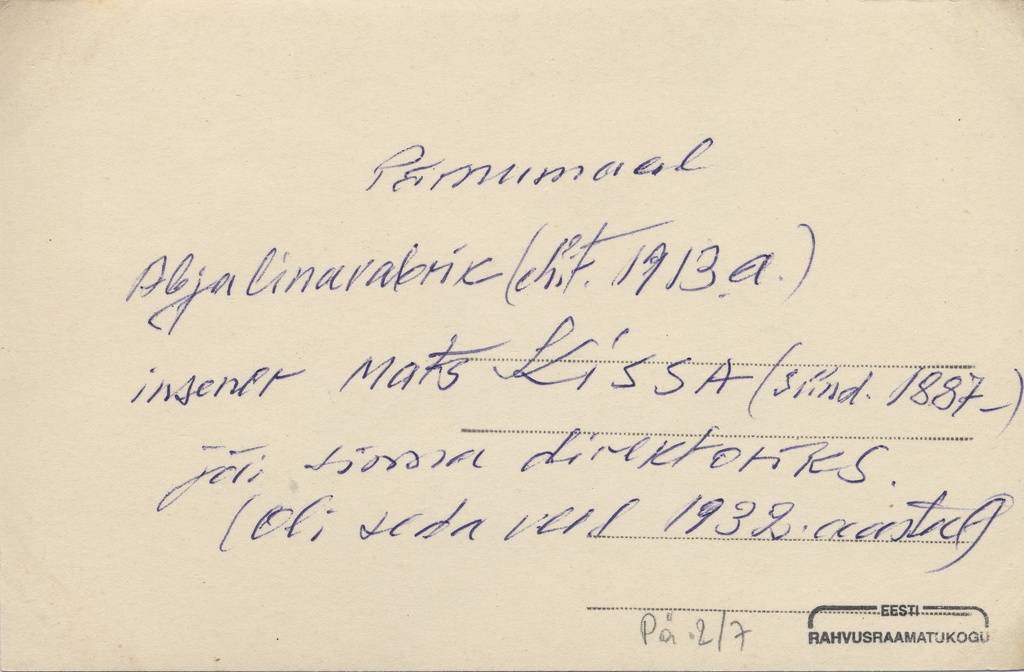 Pärnumaal
Abja linavabrik (ehit. 1913 a.)
insener Mats KISSA (sünd. 1887-)
jäi sinna direktoriks.
(Oli seda veel 1932. aastal)
Pä. 2/7
EESTI
RAHVUSRAAMATUKOGU